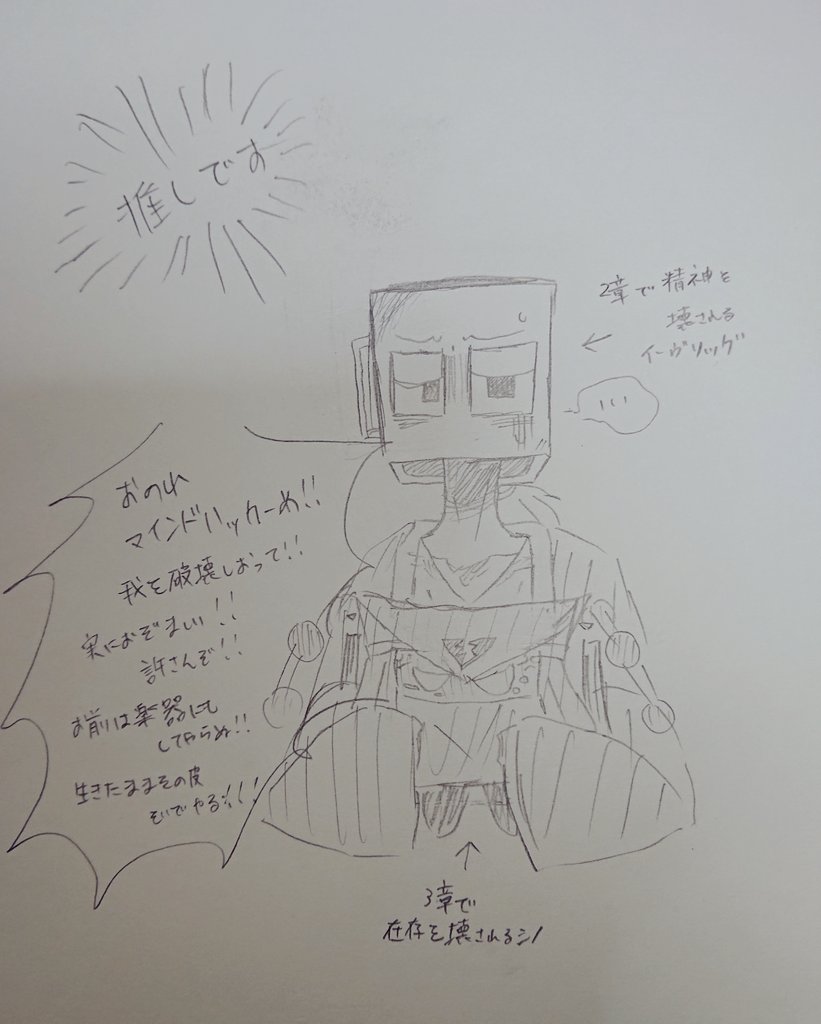 推しです
2章で精神を
壊される
イーヴリッグ
...
おのれ
マインドハッカーめ!!
我を破壊しおって!!
実におぞましい!!
許さんぞ!!
お前は楽器にも
してやらぬ!!
生きたままその皮
そいでやる!!!
3章で
在存を壊されるシノ